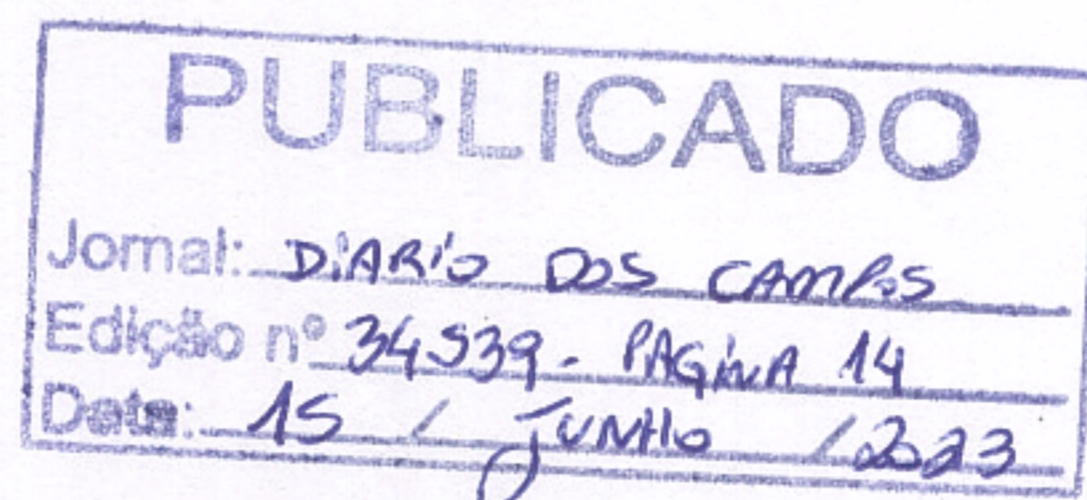 PUBLICADO
Jornal: DIARIO DOS CAMPOS
Edição nº 34539 - PAGINA 14
Data: 15 / JUNHO / 2023